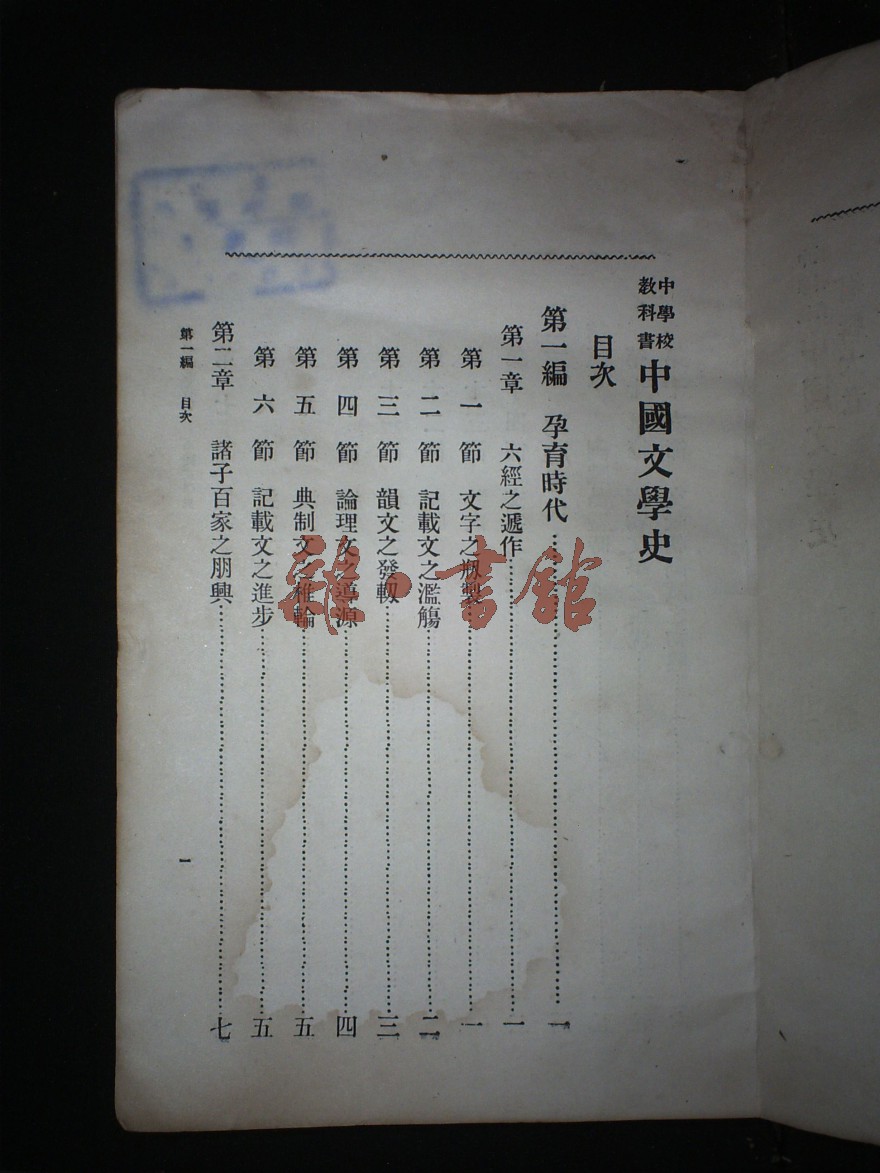 中學校教科書 中國文學史
目次
第一編 孕育時代 一
第一章 六經之遞作 一
第一節 文字之剏製 一
第二節 記載文之濫觴 二
第三節 韻文之發軔 三
第四節 論理文之導源 四
第五節 典制文之椎輪 五
第六節 記載文之進步 五
第二章 諸子百家之朋興 七
第一編 目次 一
書館